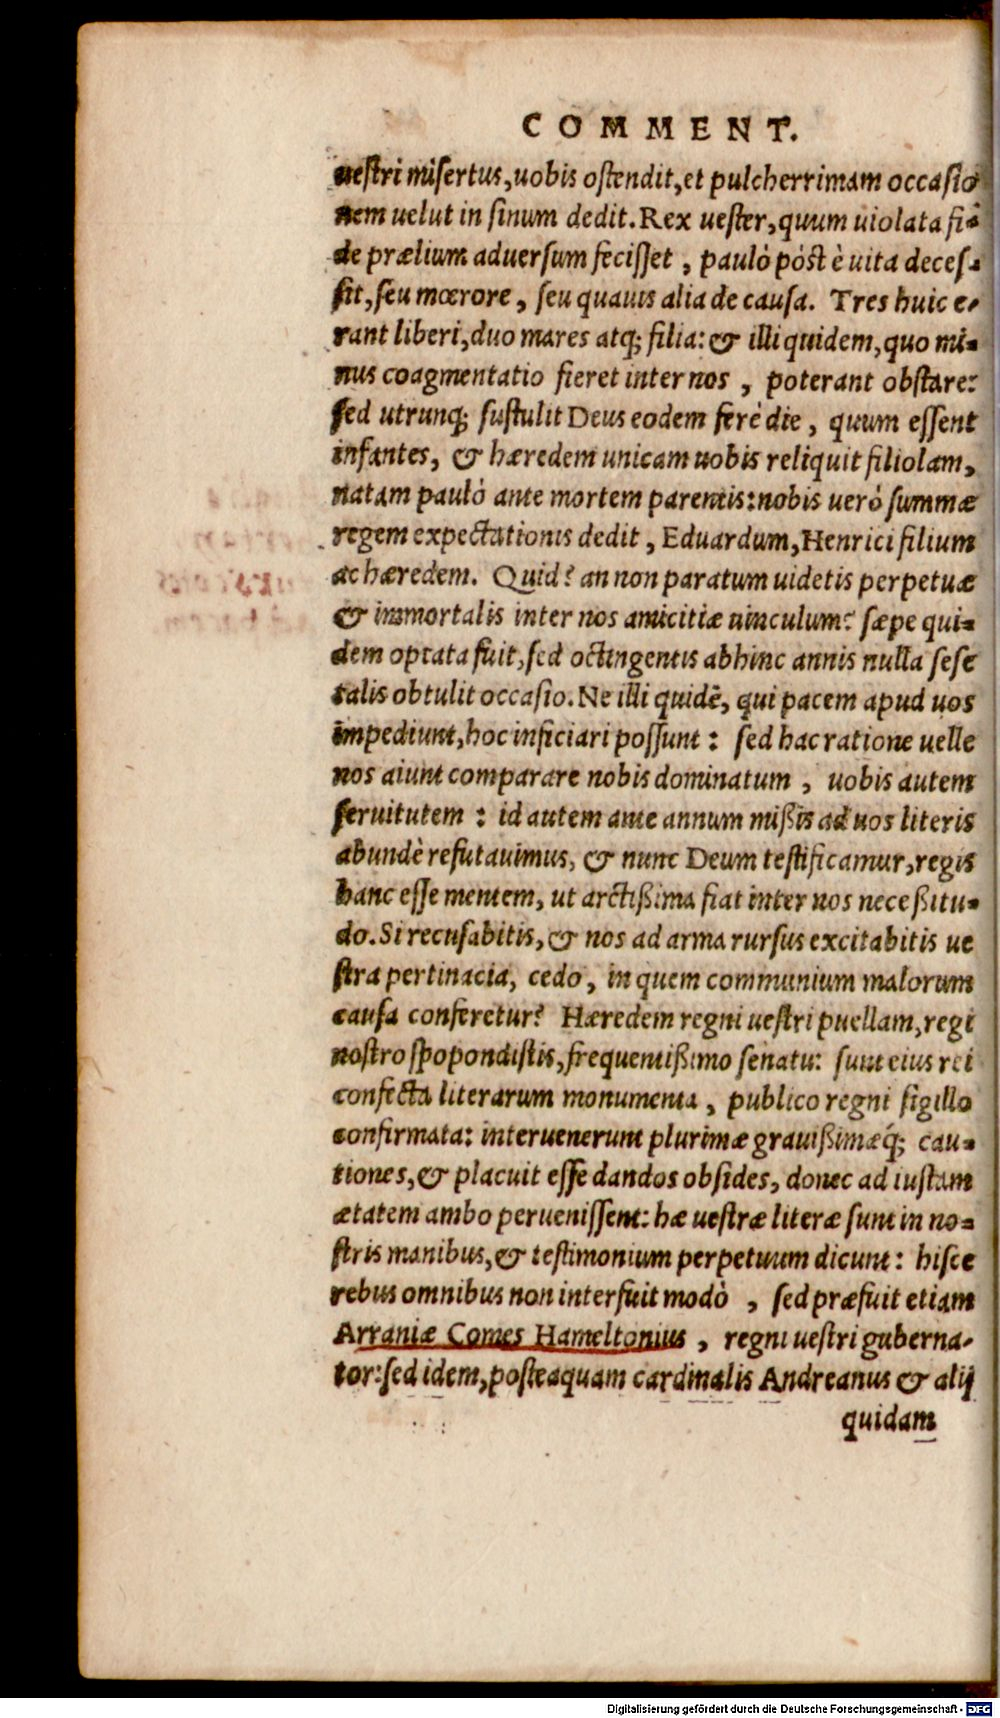 COMMENT.
uestri misertus, uobis ostendit, et pulcherrimam occasio
nem uelut in sinum dedit. Rex uester, quum uiolata fi-
de prælium aduersum fecisset, paulò pòst è uita deces-
sit, seu mœrore, seu quauis alia de causa. Tres huic e-
rant liberi, duo mares atq; filia: & illi quidem, quo mi-
nus coagmentatio fieret inter nos, poterant obstare:
sed utrunq; sustulit Deus eodem ferè die, quum essent
infantes, & hæredem unicam uobis reliquit filiolam,
natam paulò ante mortem parentis: nobis uerò summæ
regem expectationis dedit, Eduardum, Henrici filium
ac hæredem. Quid? an non paratum uidetis perpetuæ
& immortalis inter nos amicitiæ uinculum? sæpe qui-
dem optata fuit, sed octingentis abhinc annis nulla sese
talis obtulit occasio. Ne illi quidē, qui pacem apud uos
impediunt, hoc inficiari possunt: sed hac ratione uelle
nos aiunt comparare nobis dominatum, uobis autem
seruitutem: id autem ante annum mißis ad uos literis
abundè refutauimus, & nunc Deum testificamur, regis
hanc esse mentem, ut arctißima fiat inter nos neceßitu-
do. Si recusabitis, & nos ad arma rursus excitabitis ue
stra pertinacia, cedo, in quem communium malorum
causa conferetur? Hæredem regni uestri puellam, regi
nostro spopondistis, frequentißimo senatu: sunt eius rei
confecta literarum monumenta, publico regni sigillo
confirmata: interuenerunt plurimæ grauißimæq́; cau-
tiones, & placuit esse dandos obsides, donec ad iustam
ætatem ambo peruenissent: hæ uestræ literæ sunt in no-
stris manibus, & testimonium perpetuum dicunt: hisce
rebus omnibus non interfuit modò, sed præfuit etiam
Arraniæ Comes Hameltonius, regni uestri guberna-
tor: sed idem, posteaquam cardinalis Andreanus & alij
quidam
Digitalisierung gefördert durch die Deutsche Forschungsgemeinschaft - DFG